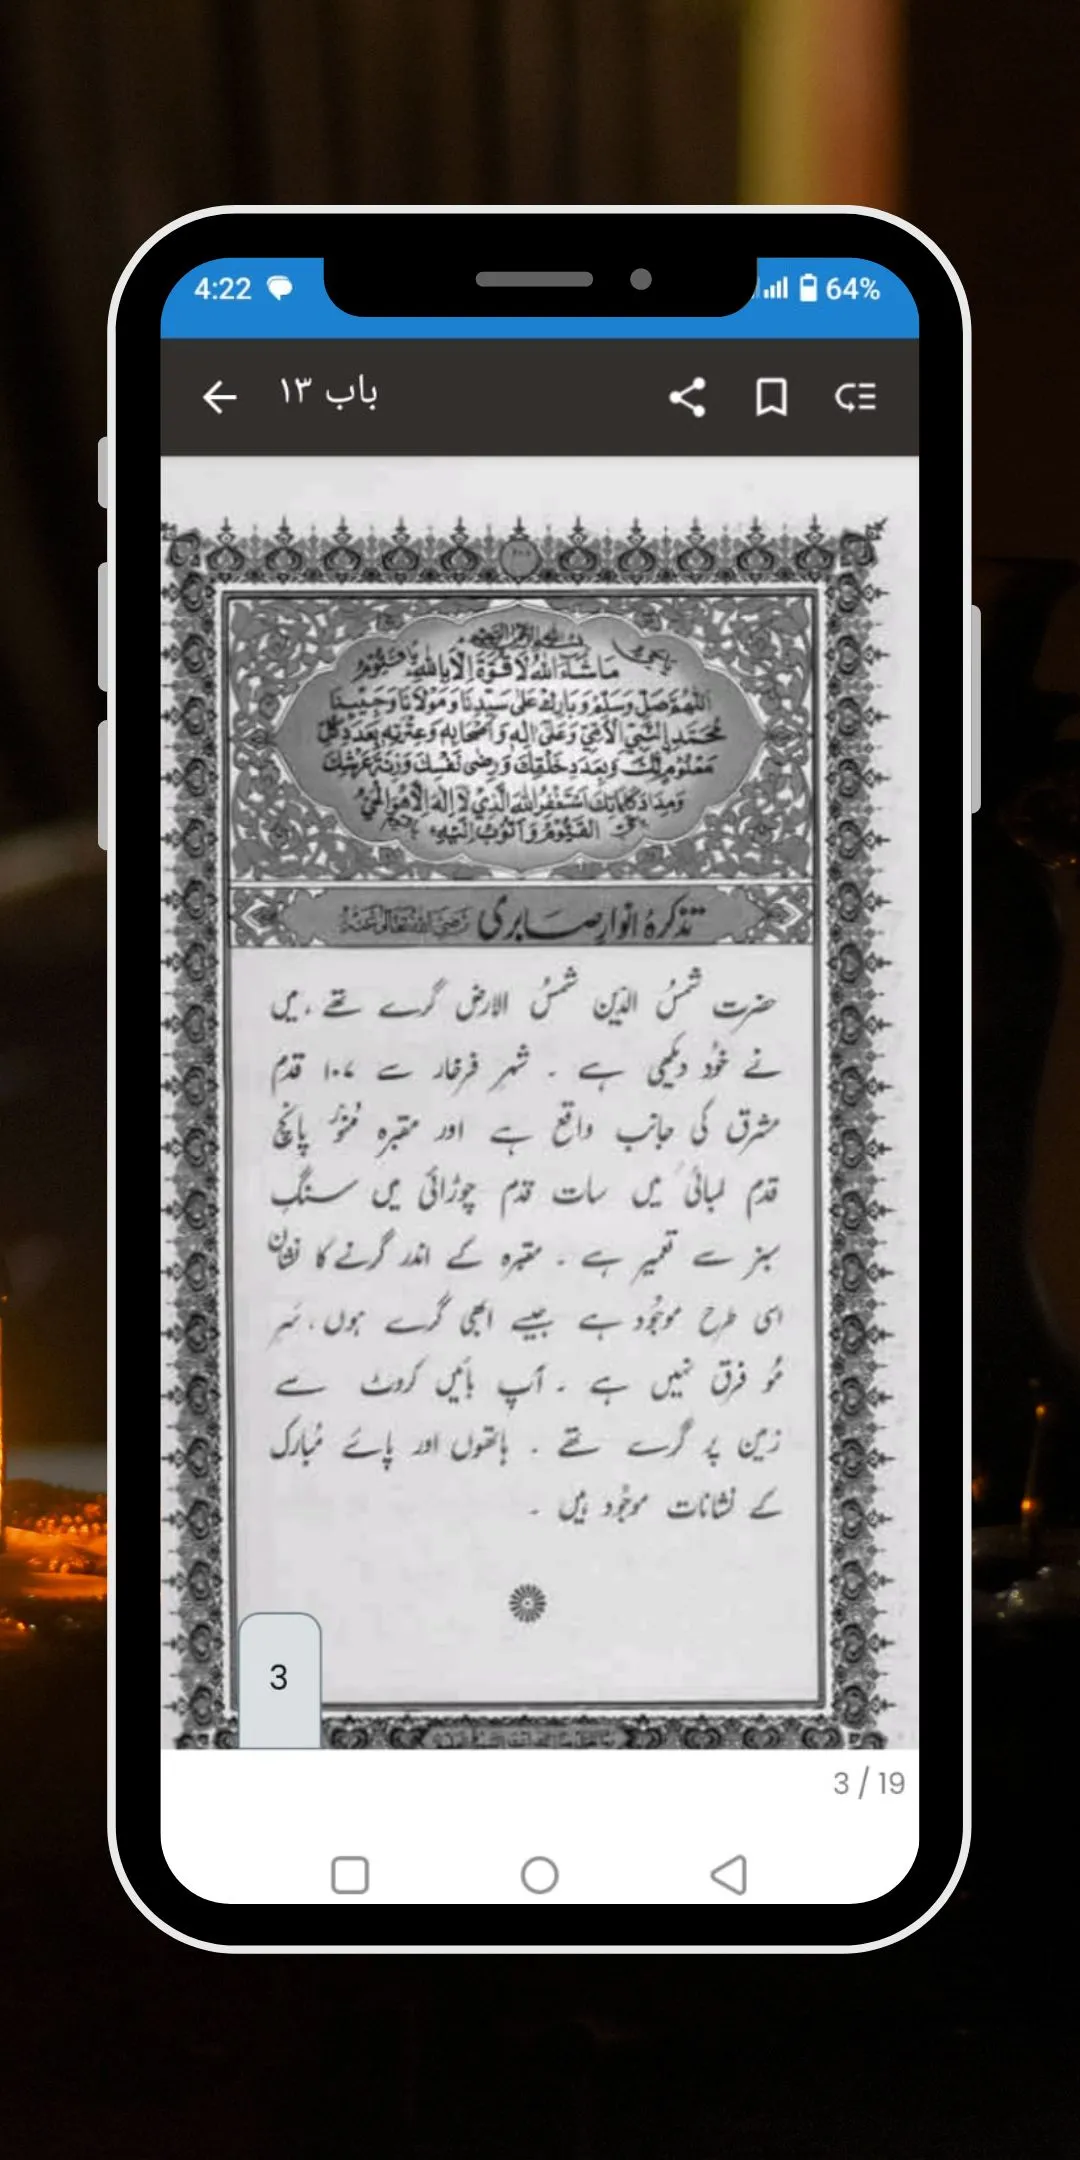 4:22
64%
باب ١٣
بسم الله الرحمن الرحيم
يَا حَيُّ مَاشَآءَ اللهُ لَا قُوَّةَ اِلَّا بِاللهِ يَا قَيُّوْمُ
اَللّٰهُمَّ صَلِّ وَسَلِّمْ وَبَارِكْ عَلٰى سَيِّدِنَا وَمَوْلَانَا وَحَبِيْبِنَا
مُحَمَّدِ اِلنَّبِيِّ الْاُمِّيِّ وَعَلٰى اٰلِهٖ وَاَصْحَابِهٖ وَعِتْرَتِهٖ بِعَدَدِ كُلِّ
مَعْلُوْمٍ لَّكَ وَبِعَدَدِ خَلْقِكَ وَرِضٰى نَفْسِكَ وَزِنَةَ عَرْشِكَ
وَمِدَادَ كَلِمَاتِكَ اَسْتَغْفِرُ اللهَ الَّذِيْ لَا اِلٰهَ اِلَّا هُوَ الْحَيُّ
الْقَيُّوْمُ وَاَتُوْبُ اِلَيْهِ
تذکرۂ انوارِ صابری رَضِيَ اللهُ تَعَالٰى عَنْهُ
حضرت شمسُ الدّین شمسُ الارض گرے تھے ، میں
نے خود دیکھی ہے ۔ شہر فرفار سے ۱۰۷ قدم
مشرق کی جانب واقع ہے اور مقبرہ منوّر پانچ
قدم لمبائی میں سات قدم چوڑائی میں سنگِ
سبز سے تعمیر ہے ۔ مقبرہ کے اندر گرنے کا نشان
اسی طرح موجُود ہے جیسے ابھی گرے ہوں ، سَر
مُو فرق نہیں ہے ۔ آپ بائیں کروٹ سے
زمین پر گرے تھے ۔ ہاتھوں اور پائے مُبارک
کے نشانات موجُود ہیں ۔
3
3 / 19